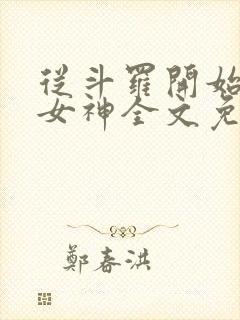 從斗羅開始
女神全文免
鄭春洪